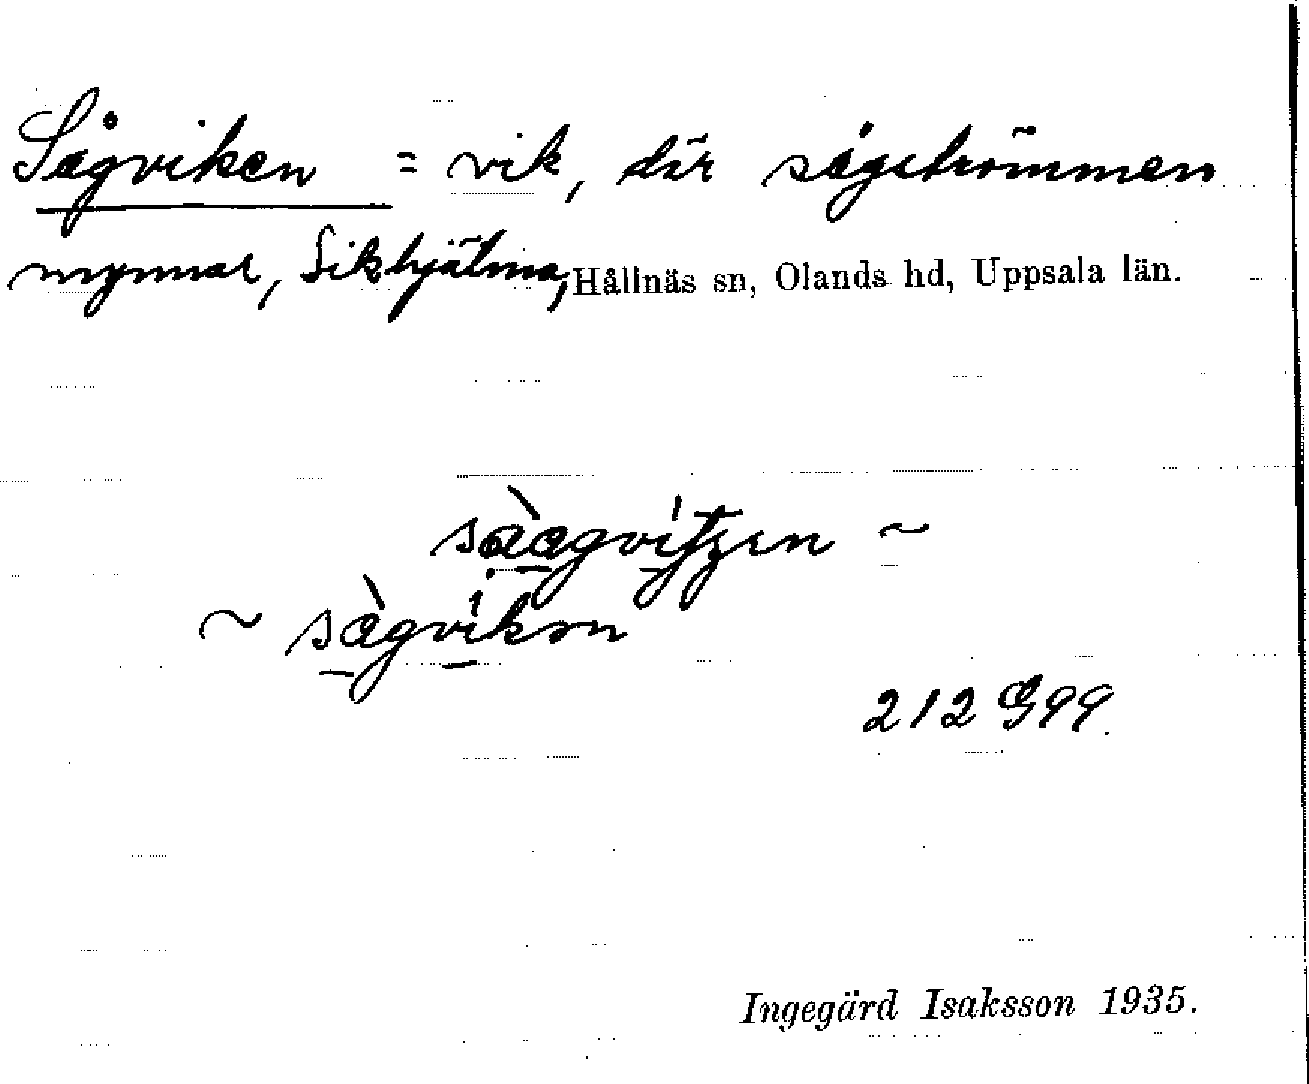 Sågviken = vik, där sågströmmen
mynnar, Sikhjälma, Hållnäs sn, Olands hd, Uppsala län.
~
~ sàgvikən
212 G99.
Ingegärd Isaksson 1935.